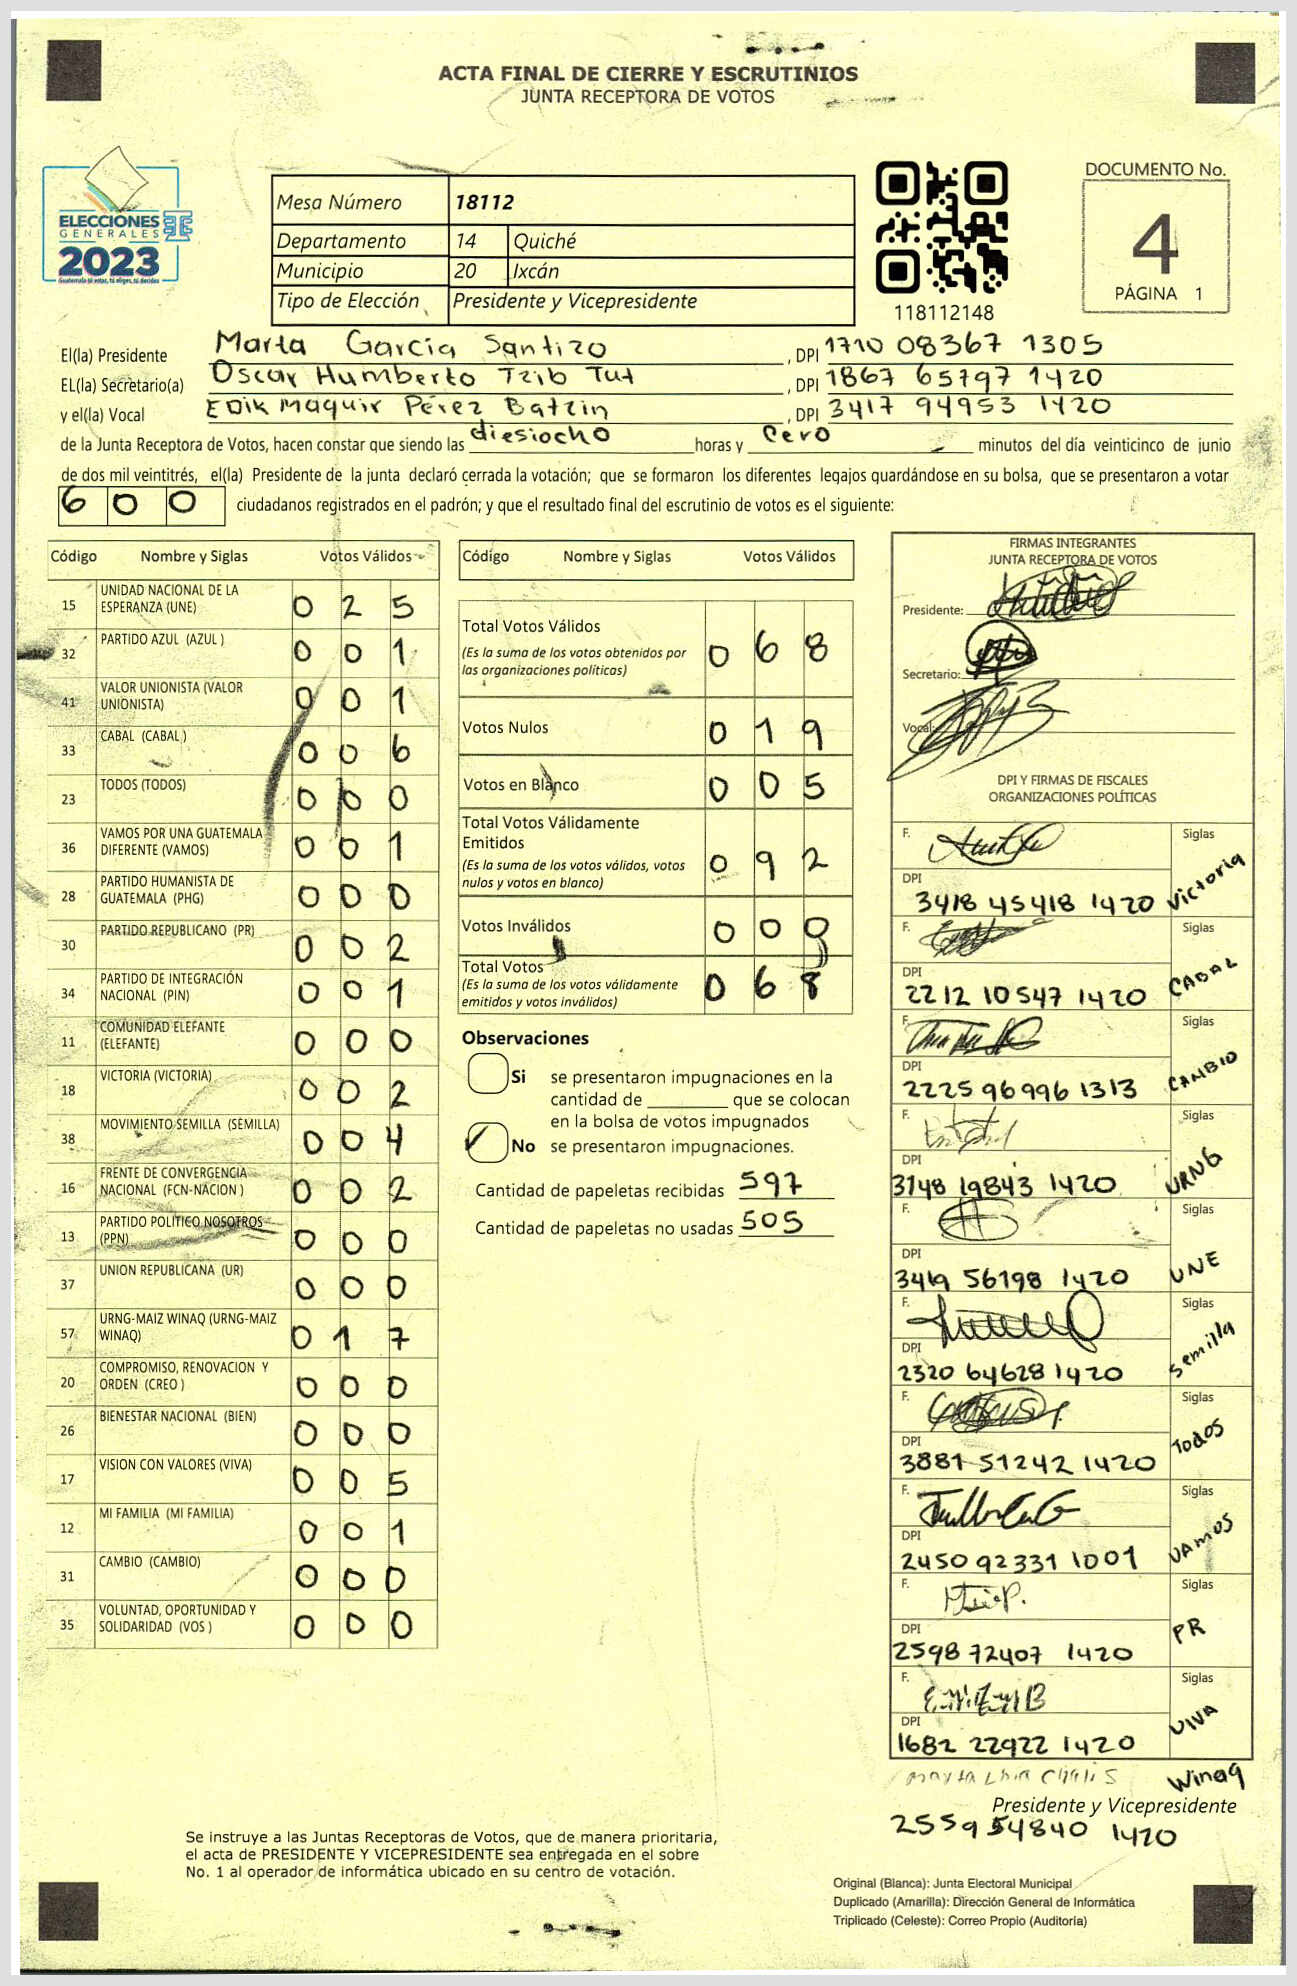 ACTA FINAL DE CIERRE Y ESCRUTINIOS
JUNTA RECEPTORA DE VOTOS
ELECCIONES
GENERALES
2023
Mesa Número 18112
Departamento 14 Quiché
Municipio 20 Ixcán
Tipo de Elección Presidente y Vicepresidente
118112148
DOCUMENTO No.
4
PÁGINA 1
El(la) Presidente Marta García Santizo , DPI 1710 08367 1305
EL(la) Secretario(a) Oscar Humberto Tzib Tut , DPI 1867 65797 1420
y el(la) Vocal EDIK Maquir Pérez Batzin , DPI 3417 94953 1420
de la Junta Receptora de Votos, hacen constar que siendo las diesiocho horas y cero minutos del día veinticinco de junio
de dos mil veintitrés, el(la) Presidente de la junta declaró cerrada la votación; que se formaron los diferentes legajos guardándose en su bolsa, que se presentaron a votar
600 ciudadanos registrados en el padrón; y que el resultado final del escrutinio de votos es el siguiente:
Código Nombre y Siglas Votos Válidos
15 UNIDAD NACIONAL DE LA ESPERANZA (UNE) 0 2 5
32 PARTIDO AZUL (AZUL ) 0 0 1
41 VALOR UNIONISTA (VALOR UNIONISTA) 0 0 1
33 CABAL (CABAL ) 0 0 6
23 TODOS (TODOS) 0 0 0
36 VAMOS POR UNA GUATEMALA DIFERENTE (VAMOS) 0 0 1
28 PARTIDO HUMANISTA DE GUATEMALA (PHG) 0 0 0
30 PARTIDO REPUBLICANO (PR) 0 0 2
34 PARTIDO DE INTEGRACIÓN NACIONAL (PIN) 0 0 1
11 COMUNIDAD ELEFANTE (ELEFANTE) 0 0 0
18 VICTORIA (VICTORIA) 0 0 2
38 MOVIMIENTO SEMILLA (SEMILLA) 0 0 4
16 FRENTE DE CONVERGENCIA NACIONAL (FCN-NACION ) 0 0 2
13 PARTIDO POLÍTICO NOSOTROS (PPN) 0 0 0
37 UNION REPUBLICANA (UR) 0 0 0
57 URNG-MAIZ WINAQ (URNG-MAIZ WINAQ) 0 1 7
20 COMPROMISO, RENOVACION Y ORDEN (CREO ) 0 0 0
26 BIENESTAR NACIONAL (BIEN) 0 0 0
17 VISION CON VALORES (VIVA) 0 0 5
12 MI FAMILIA (MI FAMILIA) 0 0 1
31 CAMBIO (CAMBIO) 0 0 0
35 VOLUNTAD, OPORTUNIDAD Y SOLIDARIDAD (VOS ) 0 0 0
Código Nombre y Siglas Votos Válidos
Total Votos Válidos 0 6 8
(Es la suma de los votos obtenidos por
las organizaciones políticas)
Votos Nulos 0 1 9
Votos en Blanco 0 0 5
Total Votos Válidamente
Emitidos 0 9 2
(Es la suma de los votos válidos, votos
nulos y votos en blanco)
Votos Inválidos 0 0 0
Total Votos 0 6 8
(Es la suma de los votos válidamente
emitidos y votos inválidos)
Observaciones
Si se presentaron impugnaciones en la
cantidad de ________ que se colocan
en la bolsa de votos impugnados
✓ No se presentaron impugnaciones.
Cantidad de papeletas recibidas 597
Cantidad de papeletas no usadas 505
FIRMAS INTEGRANTES
JUNTA RECEPTORA DE VOTOS
Presidente:
Secretario:
Vocal:
DPI Y FIRMAS DE FISCALES
ORGANIZACIONES POLÍTICAS
F. Siglas
DPI
3418 45418 1420 Victoria
F. Siglas
DPI
2212 10547 1420 CABAL
F. Siglas
DPI
2225 96996 1313 CAMBIO
F. Siglas
DPI
3148 19843 1420 URNG
F. Siglas
DPI
3419 56198 1420 UNE
F. Siglas
DPI
2320 64628 1420 Semilla
F. Siglas
DPI
3881 51242 1420 TODOS
F. Siglas
DPI
2450 92331 1001 VAMOS
F. Siglas
DPI
2598 72407 1420 PR
F. Siglas
DPI
1682 22922 1420 VIVA
Winaq
Presidente y Vicepresidente
2559 54840 1420
Se instruye a las Juntas Receptoras de Votos, que de manera prioritaria,
el acta de PRESIDENTE Y VICEPRESIDENTE sea entregada en el sobre
No. 1 al operador de informática ubicado en su centro de votación.
Original (Blanca): Junta Electoral Municipal
Duplicado (Amarilla): Dirección General de Informática
Triplicado (Celeste): Correo Propio (Auditoría)